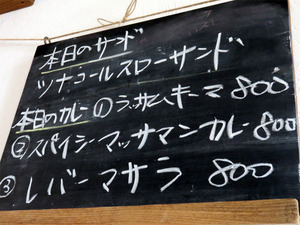 本日のサンド
ツナコールスローサンド
本日のカレー ① ラッサムキーマ 800
② スパイシーマッサマンカレー 800
③ レバーマサラ 800